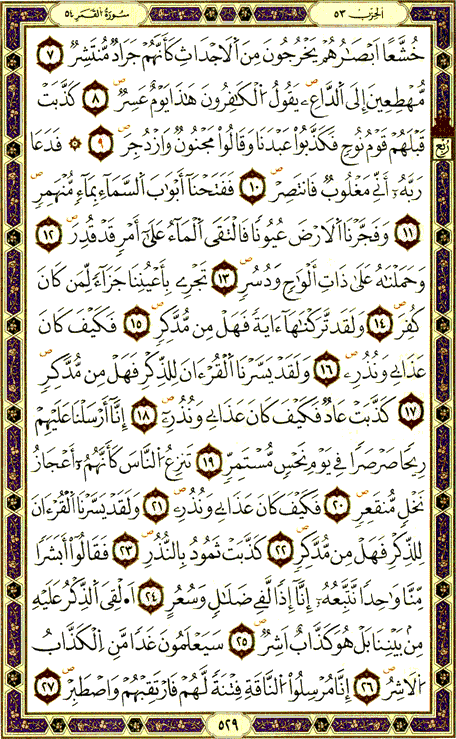 سُورَةُ القَمَر ٥٤
الحِزْب ٥٣
خُشَّعاً اَبْصَٰرُهُمْ يَخْرُجُونَ مِنَ اَلَاجْدَاثِ كَأَنَّهُمْ جَرَادٌ مُّنتَشِرٌ ٧
مُّهْطِعِينَ إِلَى اَلدَّاعِۦ يَقُولُ اُلْكَٰفِرُونَ هَٰذَا يَوْمٌ عَسِرٌ ٨ كَذَّبَتْ
رُبُع
قَبْلَهُمْ قَوْمُ نُوحٍ فَكَذَّبُواْ عَبْدَنَا وَقَالُواْ مَجْنُونٌ وَازْدُجِرَ ٩ ۞ فَدَعَا
رَبَّهُۥٓ أَنِّے مَغْلُوبٌ فَانتَصِرْ ١٠ فَفَتَحْنَآ أَبْوَٰبَ اَلسَّمَآءِ بِمَآءٖ مُّنْهَمِرٖ
١١ وَفَجَّرْنَا اَلَارْضَ عُيُوناً فَالْتَقَى اَلْمَآءُ عَلَىٰٓ أَمْرٖ قَدْ قُدِرَ ١٢
وَحَمَلْنَٰهُ عَلَىٰ ذَاتِ أَلْوَٰحٖ وَدُسُرٖ ١٣ تَجْرِے بِأَعْيُنِنَا جَزَآءٗ لِّمَن كَانَ
كُفِرَ ١٤ وَلَقَد تَّرَكْنَٰهَآ ءَايَةٗ فَهَلْ مِن مُّدَّكِرٖ ١٥ فَكَيْفَ كَانَ
عَذَابِے وَنُذُرِۦ ١٦ وَلَقَدْ يَسَّرْنَا اَلْقُرْءَانَ لِلذِّكْرِ فَهَلْ مِن مُّدَّكِرٖ
١٧ كَذَّبَتْ عَادٌ فَكَيْفَ كَانَ عَذَابِے وَنُذُرِۦٓ ١٨ إِنَّآ أَرْسَلْنَا عَلَيْهِمْ
رِيحاً صَرْصَراً فِے يَوْمِ نَحْسٖ مُّسْتَمِرّٖ ١٩ تَنزِعُ اُلنَّاسَ كَأَنَّهُمُۥٓ أَعْجَازُ
نَخْلٖ مُّنقَعِرٖ ٢٠ فَكَيْفَ كَانَ عَذَابِے وَنُذُرِۦ ٢١ وَلَقَدْ يَسَّرْنَا اَلْقُرْءَانَ
لِلذِّكْرِ فَهَلْ مِن مُّدَّكِرٖ ٢٢ كَذَّبَتْ ثَمُودُ بِالنُّذُرِ ٢٣ فَقَالُوٓاْ أَبَشَراٗ
مِّنَّا وَٰحِداٗ نَّتَّبِعُهُۥٓ إِنَّآ إِذاٗ لَّفِے ضَلَٰلٖ وَسُعُرٍ ٢٤ اَ۟لْقِيَ اَلذِّكْرُ عَلَيْهِ
مِنۢ بَيْنِنَا بَلْ هُوَ كَذَّابٌ اَشِرٌ ٢٥ سَيَعْلَمُونَ غَداٗ مَّنِ اِلْكَذَّابُ
اُلَاشِرُ ٢٦ إِنَّا مُرْسِلُواْ اُلنَّاقَةِ فِتْنَةٗ لَّهُمْ فَارْتَقِبْهُمْ وَاصْطَبِرْ ٢٧
٥٢٩